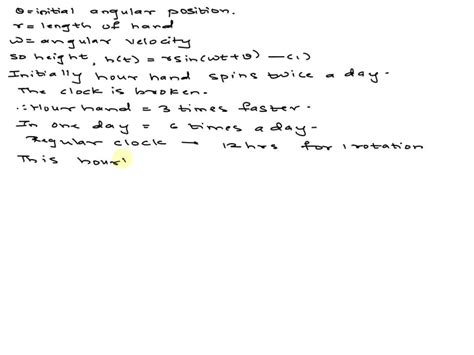 θ=initial angular position.
r=length of hand
ω=angular velocity
so height, h(t) = rsin(ωt+θ) —(1)
Initially hour hand spins twice a day.
The clock is broken.
∴Hour hand = 3 times faster.
In one day = 6 times a day.
Regular clock → 12hrs for 1 rotation
This hour